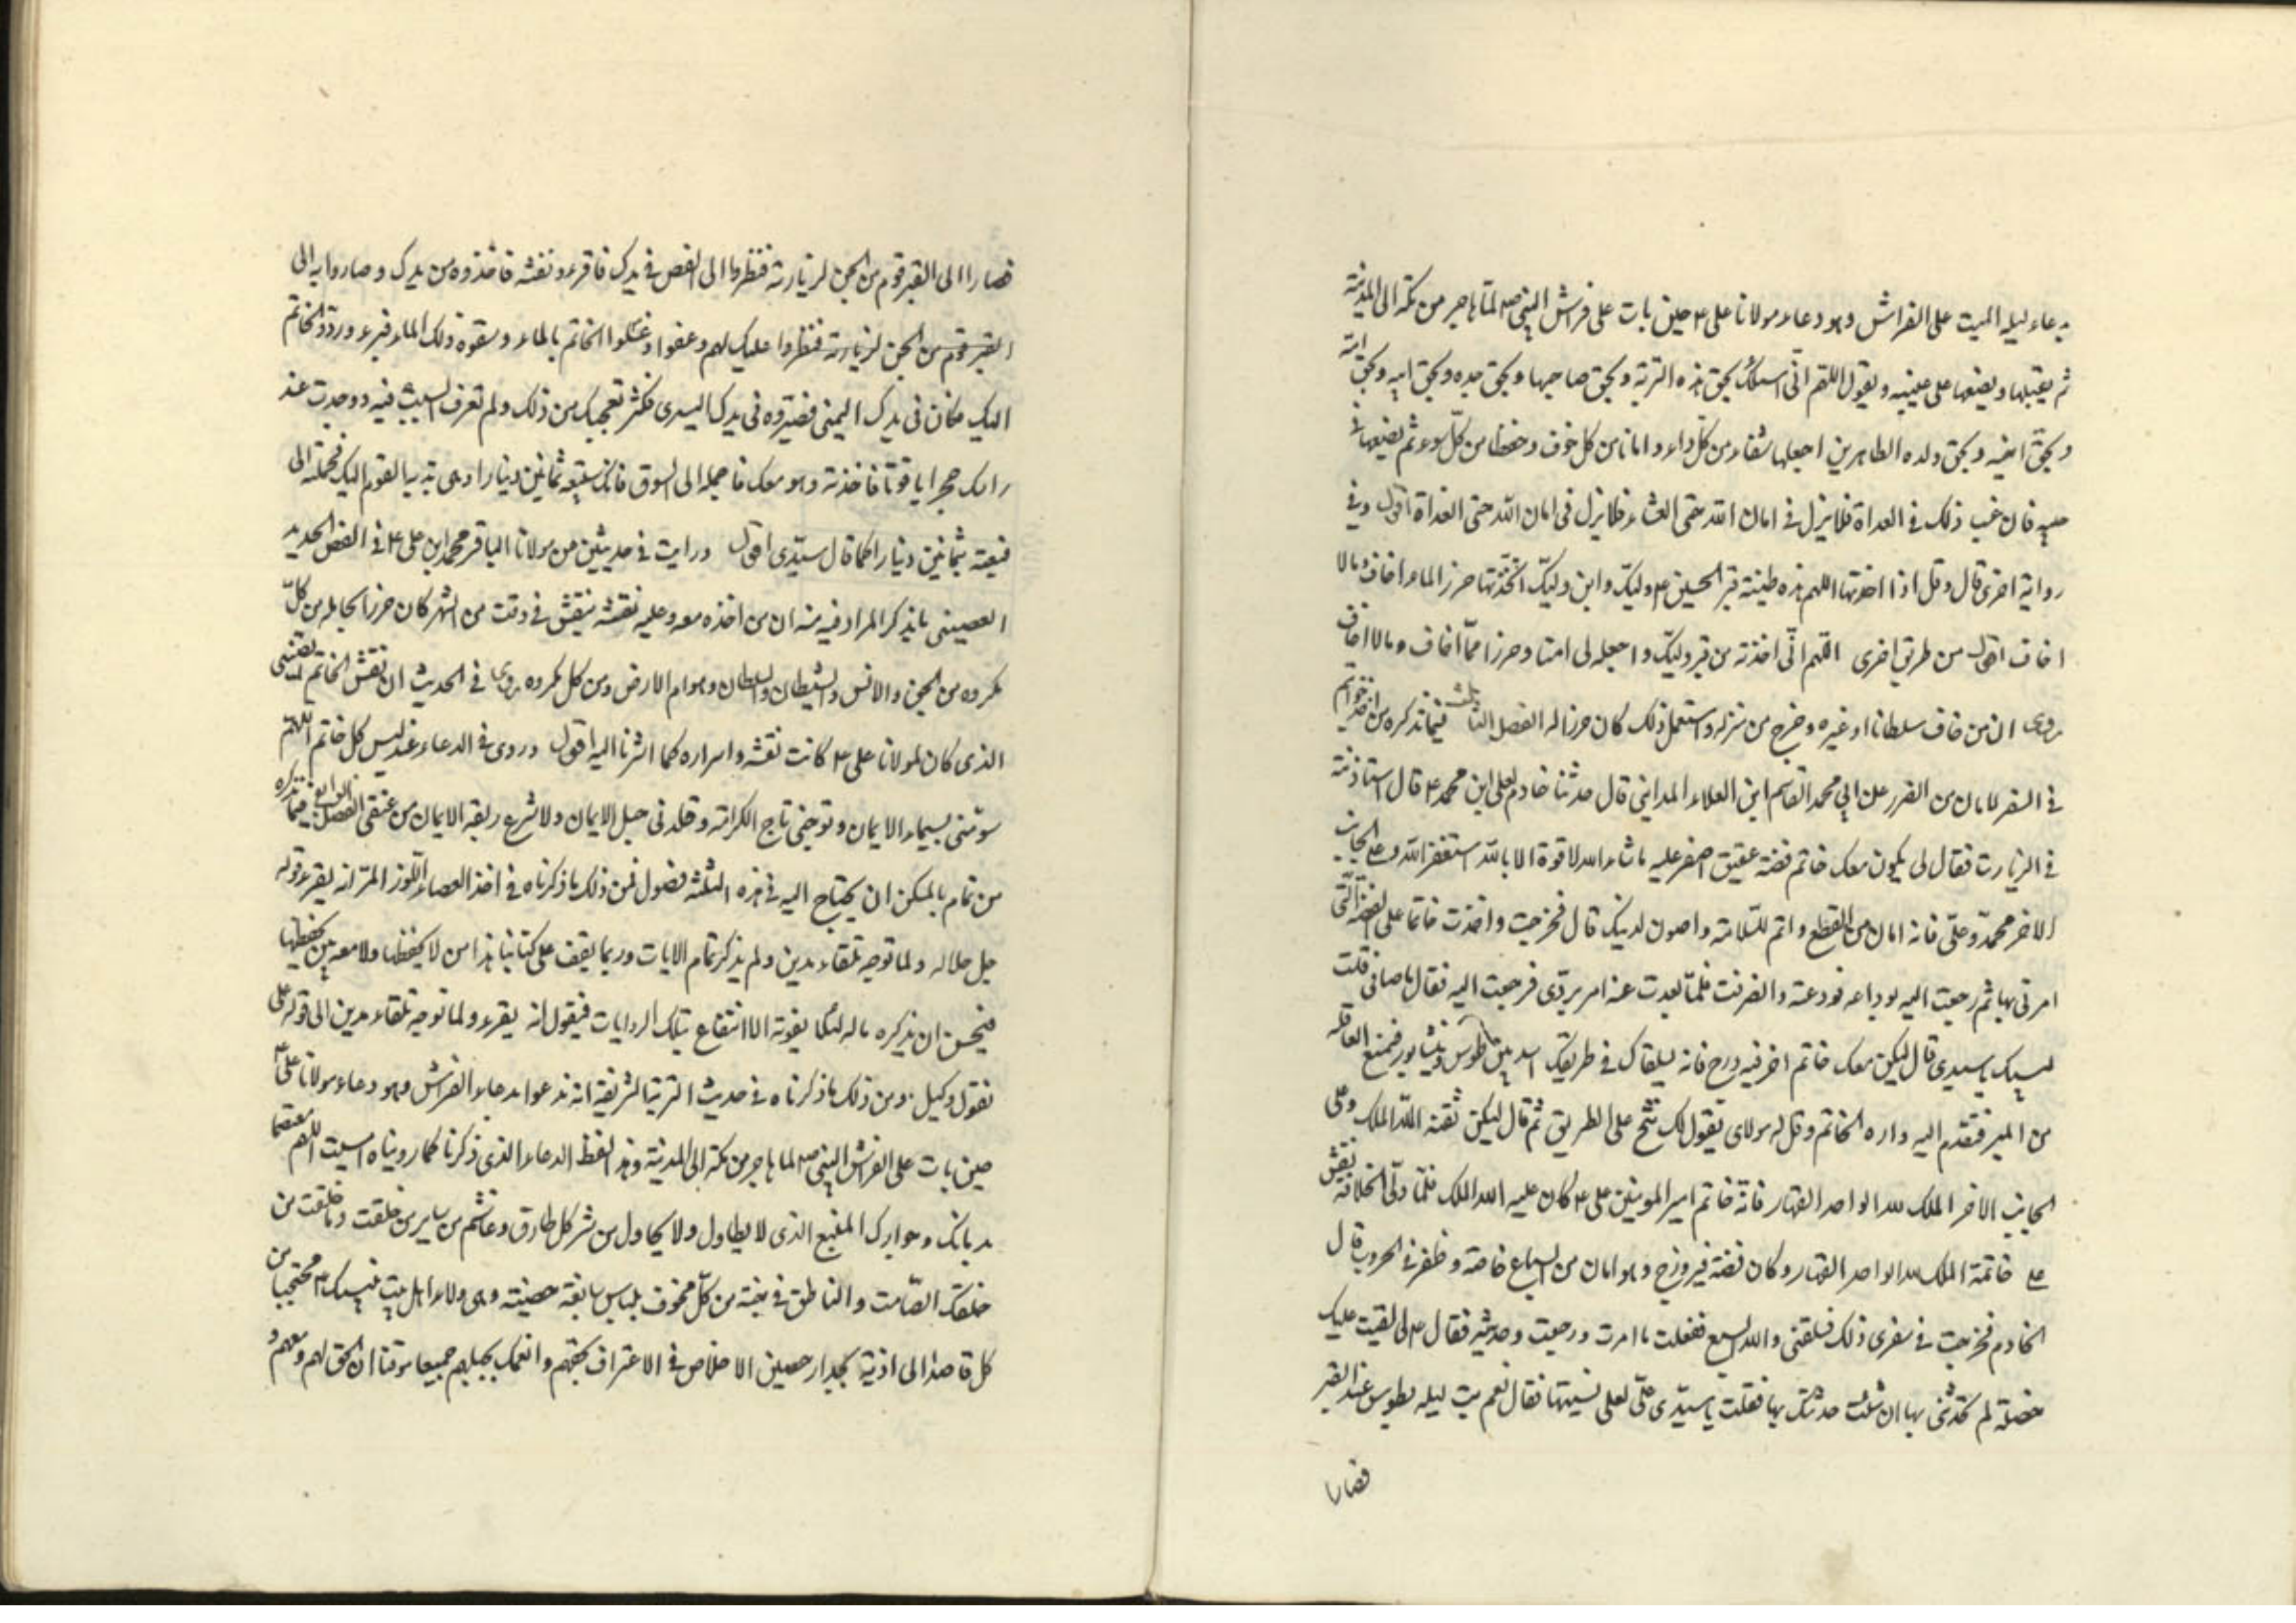 بدعاء ليلة المبيت على الفراش وهو دعاء مولانا على ع حين بات على فراش النبى ص لما هاجر من مكة الى المدينة
ثم يقبلها ويضعها على عينيه ويقول اللهم انى اسئلك بحق هذه التربة وبحق صاحبها وبحق جده وبحق ابيه وبحق امه
وبحق اخيه وبحق ولده الطاهرين اجعلها شفاء من كل داء وامانا من كل خوف وحفظا من كل سوء ثم يضعها فى
جيبه فان فعل ذلك فى الغداة فلا يزل فى امان الله حتى العشاء فلا يزل فى امان الله حتى الغداة اقول وفى
رواية اخرى قال وقل اذا اخذتها اللهم هذه طينة قبر الحسين ع وليك وابن وليك اتخذتها حرزا لما اخاف وما لا
اخاف اقول من طريق اخرى اللهم انى اخذته من قبر وليك واجعله لى امنا وحرزا مما اخاف وما لا اخاف
وروى ان من خاف سلطانا او غيره وخرج من منزله واستعمل ذلك كان حرزا له الفصل الثالث فيما نذكره من اخذ خواتم
فى السفر للامان من الضرر عن ابى محمد القاسم ابن العلاء المداينى قال حدثنا خادم لعلى ابن محمد ع قال استاذنته
فى الزيارت فقال لى يكون معك خاتم فضة عقيق اصفر عليه ما شاء الله لا قوة الا بالله استغفر الله وعلى الجانب
الاخر محمد وعلى فانه امان من القطع واتم للسلامة واصون لدينك قال فخرجت واخذت خاتما على الصفة التى
امرنى بها ثم رجعت اليه لوداعه فودعته وانصرفت فلما بعدت عنه امر بردى فرجعت اليه فقال يا صافى قلت
لبيك يا سيدى قال ليكن معك خاتم اخر فيروزج فانه يلقاك فى طريقك اسد بين طوس ونيشابور فيمنع القافلة
من المسير فتقدم اليه واره الخاتم وقل له مولاى يقول لك تنح على الطريق ثم قال ليكن نقشه الله الملك وعلى
الجانب الاخر الملك لله الواحد القهار فانه خاتم امير المومنين على ع كان عليه الله الملك فلما ولى الخلافة نقش
على خاتمه الملك لله الواحد القهار وكان فصه فيروزج وهو امان من السباع خاصة وظفر فى الحروب قال
الخادم فخرجت فى سفرى ذلك فلقنى والله السبع ففعلت ما امرت ورجعت وحدثته فقال ع لى بقيت عليك
خصلة لم تحدثنى بها ان شئت حدثتك بها فقلت يا سيدى على لعلى نسيتها فقال نعم بت ليلة بطوس عند القبر
فصارا
فصارا الى القبر قوم من الجن لزيارته فنظروا الى الفص فى يدك فاقرء و نقشه فاخذوه من يدك وصاروا به الى
القبر قوم من الجن لزيارته فنظروا عليك لهم وعفوا وغسلوا الخاتم بالماء وسقوه ذلك الماء فبرء وردوا الخاتم
اليك فكان فى يدك اليمنى فصيروه فى يدك اليسرى فكثر تعجبك من ذلك ولم تعرف السبب فيه ووجدت عند
راسك حجرا ياقوتا فاخذته وهو معك فاحمله الى السوق فانك ستبيعه بثمانين دينارا وهى هدية القوم اليك فحملته الى
فبعته بثمانين دينارا كما قال سيدى اقول ورايت فى حديثين من مولانا الباقر محمد ابن على ع فى الفص الحديد
الصينى ما يذكر المراد فيه منه ان من اخذه معه وعليه نقشه ينقش فى وقت من الشهر كان حرزا لحامله من كل
مكروه من الجن والانس والشيطان والسلطان وهوام الارض ومن كل مكروه وروى فى الحديث ان نقش الخاتم
الذى كان لمولانا على ع كانت نقشه واسراره كما اشرنا اليه اقول وروى فى الدعاء عند لبس كل خاتم اللهم
سومنى بسيماء الايمان وتوجنى تاج الكرامة وقلدنى حبل الايمان ولا تنزع ربقة الايمان من عنقى الفصل الرابع فيما نذكره
من تمام ما يمكن ان يحتاج اليه فى هذه الثلثة فصول فمن ذلك ما ذكرناه فى اخذ العصاء اللوز المر انه يقرء قوله
جل جلاله ولما توجه تلقاء مدين ولم يذكر تمام الايات وربما يقف على كتابنا هذا من لا يحفظها ولا معه من يحفظها
فيحسن ان نذكره ماله لئلا يفوته الا انتفاع بتلك الروايات فيقول انه يقرء ولما توجه تلقاء مدين الى قوله على
نقول وكيل ومن ذلك ما ذكرناه فى حديث التربة الشريفة انه ندعوا بدعاء الفراش وهو دعاء مولانا على ع
حين بات على الفراش النبى ص لما هاجر من مكة الى المدينة وهذا لفظ الدعاء الذى ذكرنا كما رويناه امسيت اللهم معتصما
بذمامك وجوارك المنيع الذى لا يطاول ولا يحاول من شر كل طارق وغاشم من ساير من خلقت وما خلقت من
خلقك الصامت والناطق فى جنة من كل مخوف بلباس سابغة حصينة وهى ولاء اهل بيت نبيك ع محتجبا من
كل قاصد الى اذية بجدار حصين الاخلاص فى الاعتراف بحقهم والتمسك بحبلهم جميعا موقنا ان الحق لهم ومعهم و